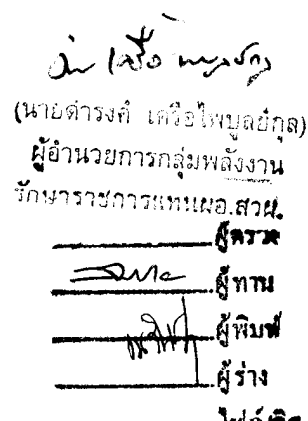 (นายดำรงค์ เครือไพบูลย์กุล)
ผู้อำนวยการกลุ่มพลังงาน
รักษาราชการแทนผอ.สวผ.
ผู้ตรวจ
ผู้ทาน
ผู้พิมพ์
ผู้ร่าง